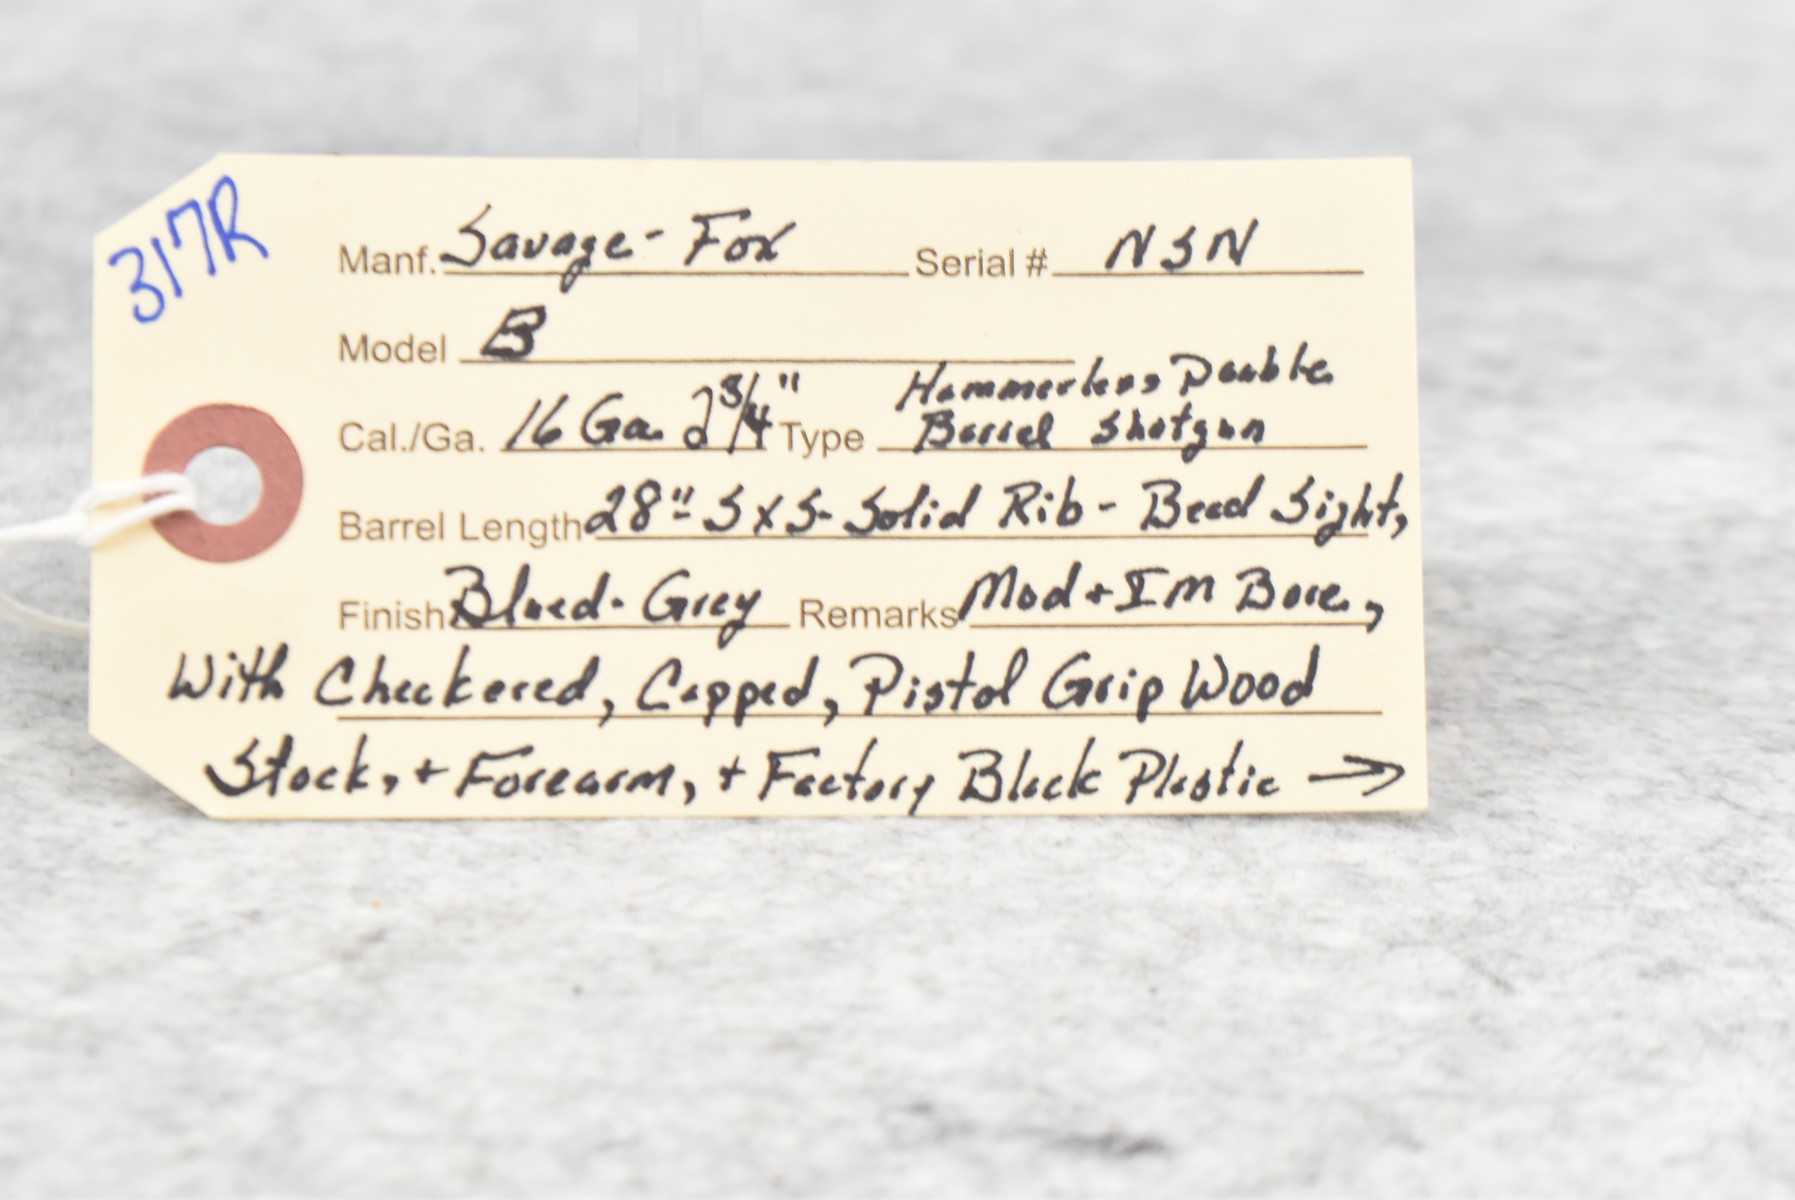 317R
Manf. Savage-Fox Serial # NSN
Model B
Cal./Ga. 16 Ga. 2 3/4" Type Hammerless Double
Barrel Shotgun
Barrel Length 28"-SxS-Solid Rib-Bead Sight,
Finish Blued-Grey Remarks Mod+IM Bore,
With Checkered, Capped, Pistol Grip Wood
Stock, + Forearm, + Factory Black Plastic →